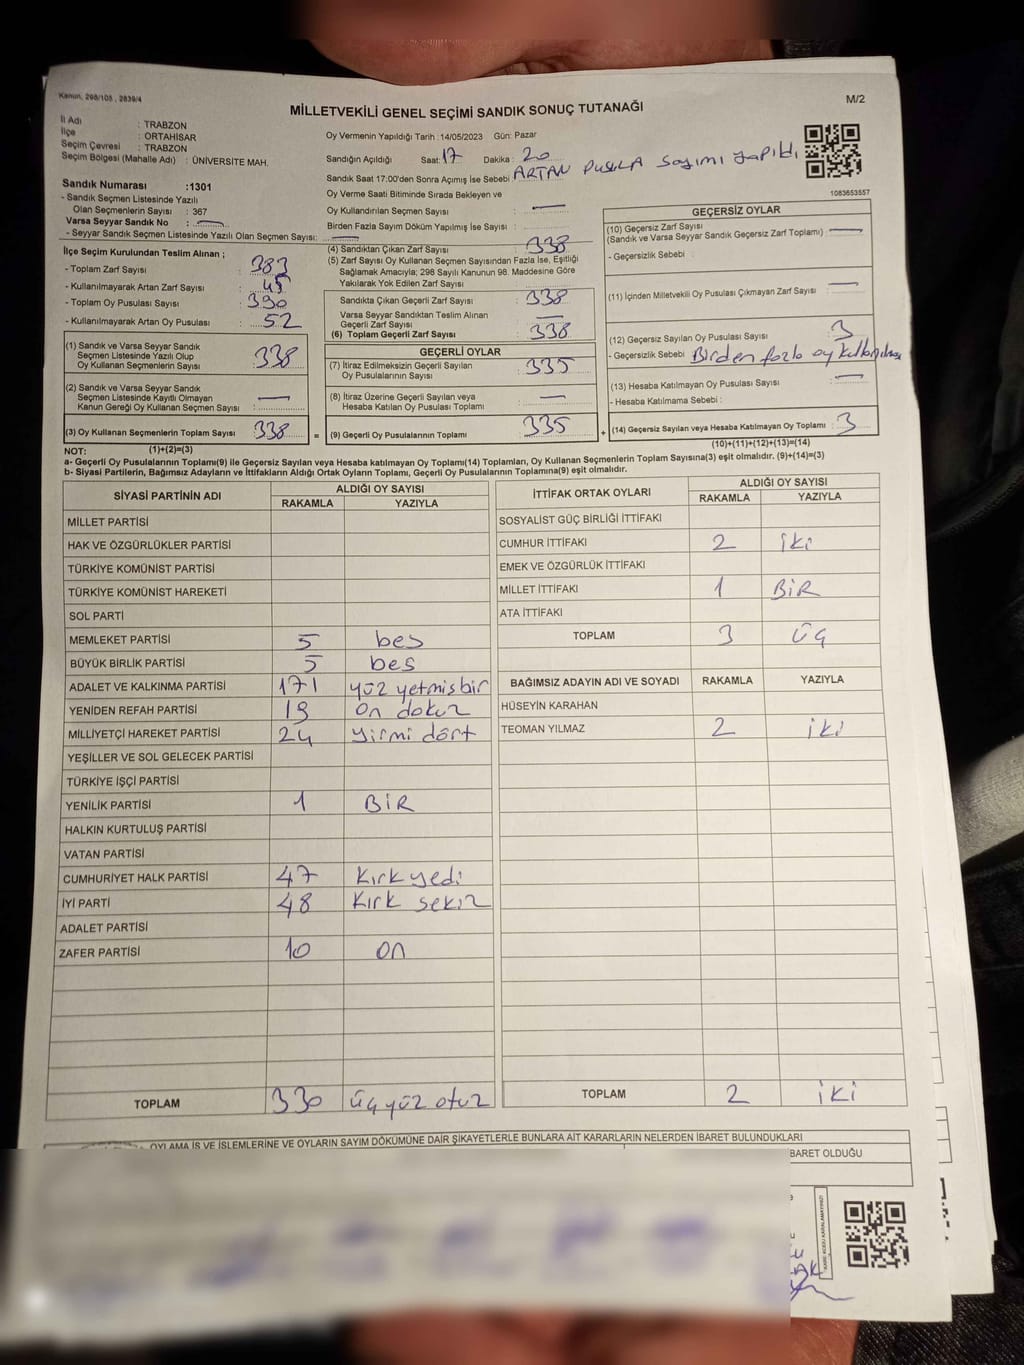 Kanun, 298/105 , 2839/4
MİLLETVEKİLİ GENEL SEÇİMİ SANDIK SONUÇ TUTANAĞI
M/2
İl Adı : TRABZON
İlçe : ORTAHİSAR
Seçim Çevresi : TRABZON
Seçim Bölgesi (Mahalle Adı) : ÜNİVERSİTE MAH.
Oy Vermenin Yapıldığı Tarih :14/05/2023 Gün: Pazar
Sandığın Açıldığı Saat:17 Dakika : 20
Sandık Saat 17:00'den Sonra Açılmış İse Sebebi: ARTAN PUSULA Sayımı yapıldı
Oy Verme Saati Bitiminde Sırada Bekleyen ve
Oy Kullandırılan Seçmen Sayısı : —
Birden Fazla Sayım Döküm Yapılmış İse Sayısı :
1083653557
Sandık Numarası :1301
- Sandık Seçmen Listesinde Yazılı
Olan Seçmenlerin Sayısı : 367
Varsa Seyyar Sandık No : —
- Seyyar Sandık Seçmen Listesinde Yazılı Olan Seçmen Sayısı: —
İlçe Seçim Kurulundan Teslim Alınan ;
- Toplam Zarf Sayısı : 383
- Kullanılmayarak Artan Zarf Sayısı : 45
- Toplam Oy Pusulası Sayısı : 390
- Kullanılmayarak Artan Oy Pusulası : 52
(1) Sandık ve Varsa Seyyar Sandık
Seçmen Listesinde Yazılı Olup
Oy Kullanan Seçmenlerin Sayısı : 338
(2) Sandık ve Varsa Seyyar Sandık
Seçmen Listesinde Kayıtlı Olmayan
Kanun Gereği Oy Kullanan Seçmen Sayısı : —
(3) Oy Kullanan Seçmenlerin Toplam Sayısı : 338
(4) Sandıktan Çıkan Zarf Sayısı : 338
(5) Zarf Sayısı Oy Kullanan Seçmen Sayısından Fazla İse, Eşitliği
Sağlamak Amacıyla; 298 Sayılı Kanunun 98. Maddesine Göre
Yakılarak Yok Edilen Zarf Sayısı :
Sandıkta Çıkan Geçerli Zarf Sayısı : 338
Varsa Seyyar Sandıktan Teslim Alınan
Geçerli Zarf Sayısı : —
(6) Toplam Geçerli Zarf Sayısı : 338
GEÇERLİ OYLAR
(7) İtiraz Edilmeksizin Geçerli Sayılan
Oy Pusulalarının Sayısı : 335
(8) İtiraz Üzerine Geçerli Sayılan veya
Hesaba Katılan Oy Pusulası Toplamı : —
= (9) Geçerli Oy Pusulalarının Toplamı : 335
GEÇERSİZ OYLAR
(10) Geçersiz Zarf Sayısı : —
(Sandık ve Varsa Seyyar Sandık Geçersiz Zarf Toplamı)
- Geçersizlik Sebebi :
(11) İçinden Milletvekili Oy Pusulası Çıkmayan Zarf Sayısı : —
(12) Geçersiz Sayılan Oy Pusulası Sayısı : 3
- Geçersizlik Sebebi : Birden fazla oy kullanılması
(13) Hesaba Katılmayan Oy Pusulası Sayısı : —
- Hesaba Katılmama Sebebi :
+ (14) Geçersiz Sayılan veya Hesaba Katılmayan Oy Toplamı : 3
NOT: (1)+(2)=(3) (10)+(11)+(12)+(13)=(14)
a- Geçerli Oy Pusulalarının Toplamı(9) ile Geçersiz Sayılan veya Hesaba katılmayan Oy Toplamı(14) Toplamları, Oy Kullanan Seçmenlerin Toplam Sayısına(3) eşit olmalıdır. (9)+(14)=(3)
b- Siyasi Partilerin, Bağımsız Adayların ve İttifakların Aldığı Ortak Oyların Toplamı, Geçerli Oy Pusulalarının Toplamına(9) eşit olmalıdır.
SİYASİ PARTİNİN ADI ALDIĞI OY SAYISI
RAKAMLA YAZIYLA
MİLLET PARTİSİ
HAK VE ÖZGÜRLÜKLER PARTİSİ
TÜRKİYE KOMÜNİST PARTİSİ
TÜRKİYE KOMÜNİST HAREKETİ
SOL PARTİ
MEMLEKET PARTİSİ 5 bes
BÜYÜK BİRLİK PARTİSİ 5 bes
ADALET VE KALKINMA PARTİSİ 171 yüz yetmisbir
YENİDEN REFAH PARTİSİ 19 on dokuz
MİLLİYETÇİ HAREKET PARTİSİ 24 yirmi dört
YEŞİLLER VE SOL GELECEK PARTİSİ
TÜRKİYE İŞÇİ PARTİSİ
YENİLİK PARTİSİ 1 BİR
HALKIN KURTULUŞ PARTİSİ
VATAN PARTİSİ
CUMHURİYET HALK PARTİSİ 47 Kırk yedi
İYİ PARTİ 48 Kırk sekiz
ADALET PARTİSİ
ZAFER PARTİSİ 10 on
TOPLAM 330 üç yüz otuz
İTTİFAK ORTAK OYLARI ALDIĞI OY SAYISI
RAKAMLA YAZIYLA
SOSYALİST GÜÇ BİRLİĞİ İTTİFAKI
CUMHUR İTTİFAKI 2 iki
EMEK VE ÖZGÜRLÜK İTTİFAKI
MİLLET İTTİFAKI 1 BİR
ATA İTTİFAKI
TOPLAM 3 üç
BAĞIMSIZ ADAYIN ADI VE SOYADI RAKAMLA YAZIYLA
HÜSEYİN KARAHAN
TEOMAN YILMAZ 2 iki
TOPLAM 2 iki
OYLAMA İŞ VE İŞLEMLERİNE VE OYLARIN SAYIM DÖKÜMÜNE DAİR ŞİKAYETLERLE BUNLARA AİT KARARLARIN NELERDEN İBARET BULUNDUKLARI
BARET OLDUĞU
KARE KODU KARALAMAYINIZ!